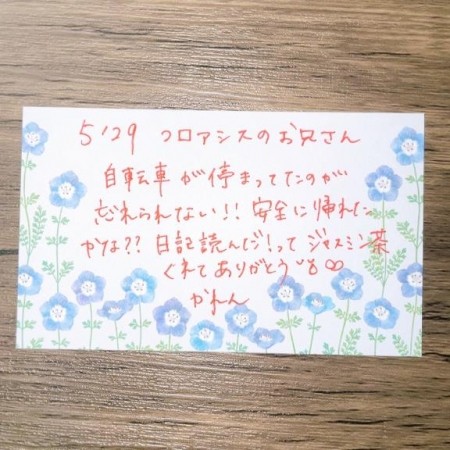 5/29 コロアシスのお兄さん
自転車が停まってたのが
忘れられない!! 安全に帰れた
かな?? 日記読んだ!ってジャスミン茶
くれてありがとう
かれん